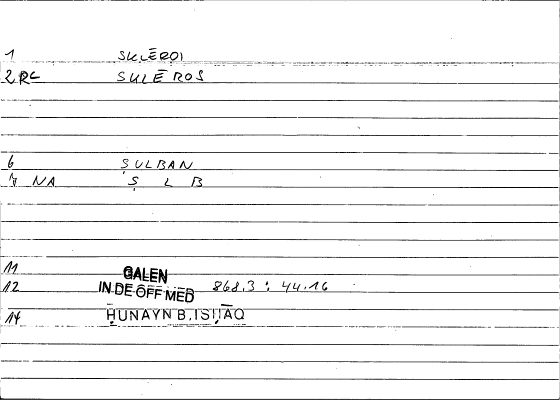 1 SKLĒROI
2 RC SKLĒROS
6 ṢULBAN
7 NA Ṣ L B
11 GALEN
12 IN DE OFF MED 868.3 : 44.16
14 ḤUNAYN B. ISḤĀQ